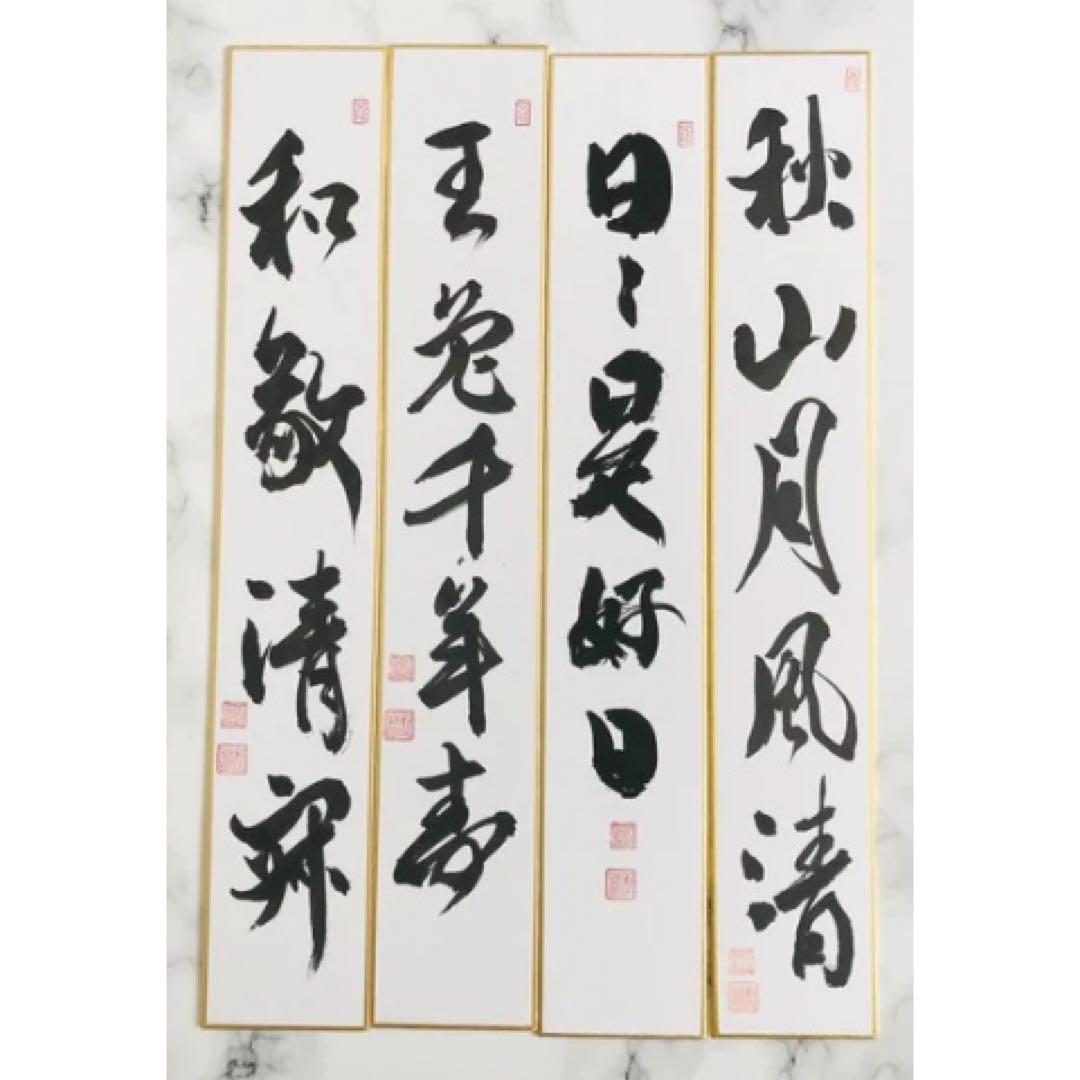 秋山月風清
日々是好日
王兎千年寿
和敬清寂